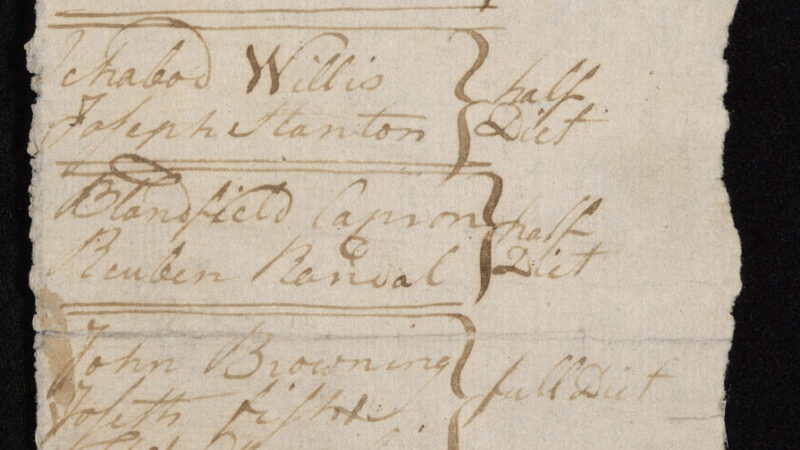 Ichabod Willis
Joseph Stanton
half
Diet
Blandfield Capron
Reuben Randal
half
Diet
John Browning
Joseth
full Diet